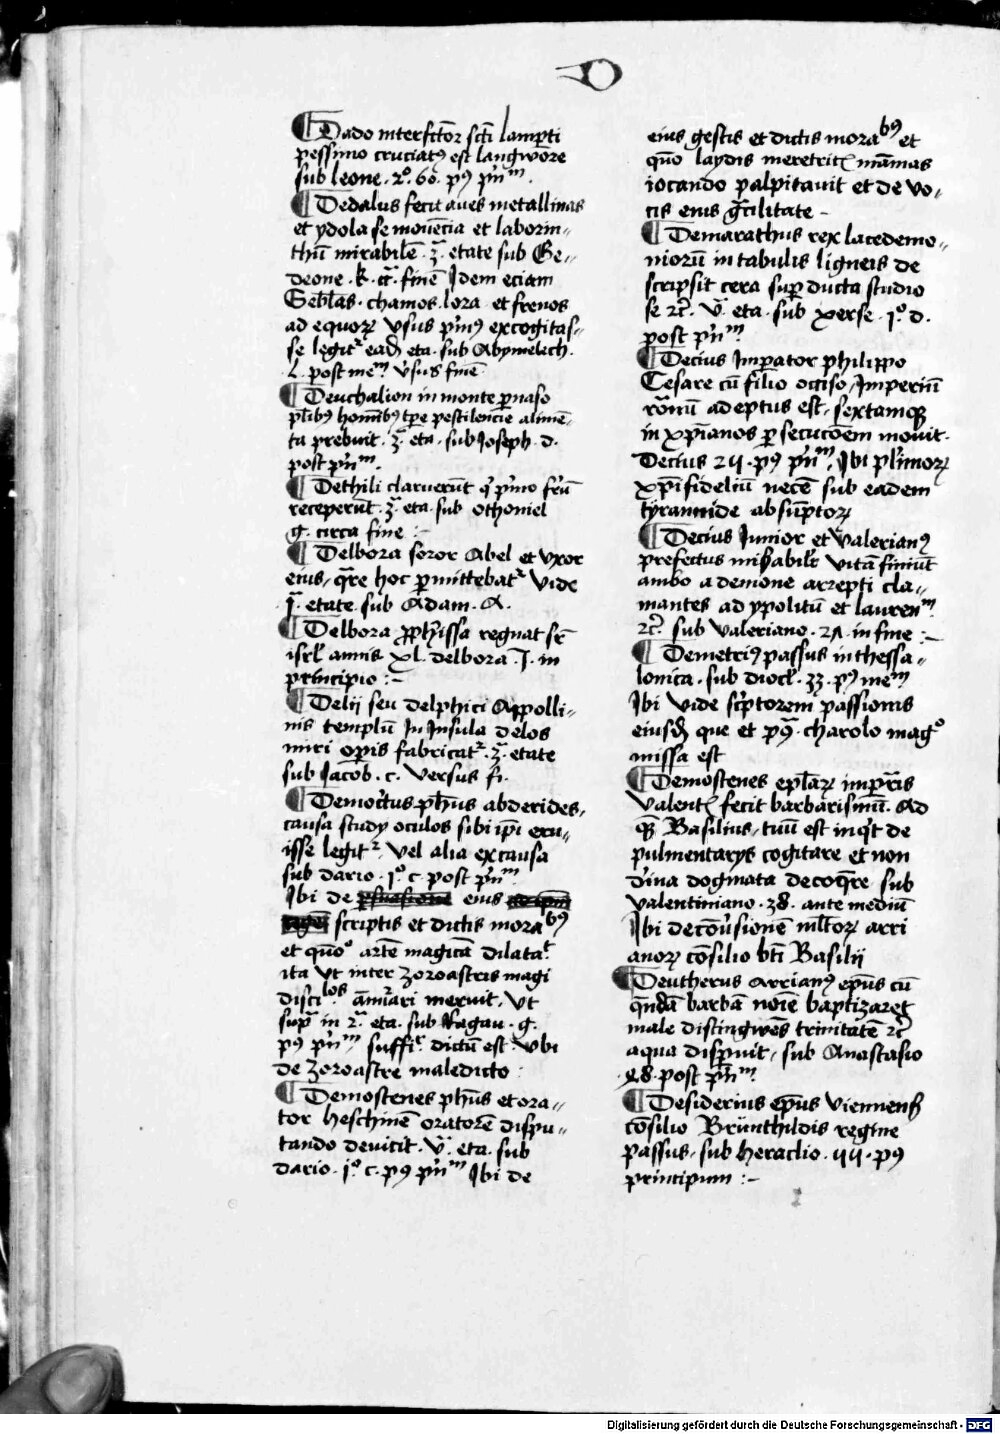 D
Dado interfctōr sctī lamp̱ti
pessimo cruciatꝰ est langwōre
sub leone · 2º · 60 · pꝰ pn̄m̄ ·
Dedalus fecit aues metallinas
et ydola se mouēcia et laborin=
thū mirabilē · 3ᵃ · etate sub Ge=
deone · k · cͣ · finē Idem eciam
chamos · lora · et frenos
ad equoꝝ vsus pͥmꝰ excogitas=
se legitͬ eadē eta · sub Abymelech ·
l · post meᵐ vsus finē
Deuchalion in monte ꝑnaso
pl̄ibꝰ homībꝰ tꝑe pestilencie alimē=
ta prebuit · 3ᵃ · eta · sub Joseph · d ·
post pn̄m̄ ·
Dethili claruerūt qͥ pͥmo frū
receperūt · 3ᵃ · eta · sub Othoniel
g · circa fine :
Delbora soror Abel et vxor
eius, qͣre hoc ꝑmittebatͬ vide
Iᵃ · etate · sub Adam · A ·
Delbora ꝓphīssa regnat sr̄
isrl̄ annis xl · delbora · I · in
principio :~
Delij seu delphici Appolli=
nis templū In Insula delos
miri oꝑis fabricatͬ · 3ᵃ · etate
sub Jacob · c · versus fi ·
Democͥtus ph̄us abderides ·
causa study oculos sibi ipī eru=
isse legitͬ, vel alia ex causa
sub dario · Iº · c · post pn̄m̄
Ibi de eius
scriptis et dictis morabꝰ
et quō artē magicā dilatat
ita vt inter Zoroastris magi
discilos annīari meruit, vt
supͣ in 2ᵃ · eta · sub Ragau · g ·
pꝰ pn̄m̄ suffiᵗ dictū est vbi
de Zoroastre maledicto :
Demostenes ph̄us et ora=
tor heschinē oratorē dispu=
tando deuicit · vᵃ · eta · sub
dario · Iº · c · pꝰ pn̄m̄ Ibi de
eius gestis et dictis morabꝰ et
quō laydis meretricꝭ māmas
iocando palpitauit et de vo=
cis eius gͣcilitate ~
Demarathus rex lacedemo=
niorū in tabulis ligneis de
scripsit cera suꝑ ducta studio
se ⁊c̄ · vᵃ · eta · sub xerse · Iº · d ·
post pn̄m̄
Decius Imꝑator philippo
Cesare cū filio occiso, Imperiū
rōmū adeptus est, sextamqꝫ
in xp̄ianos ꝑsecucōem mouit ·
Decius 2ij · pꝰ pn̄m̄, Ibi pl̄imoꝝ
xp̄ifideliū necē sub eadem
tyrannide absūptoꝝ
Decius Junior et valerianꝰ
prefectus misͣbilr̄ vitā finiūt
ambo a demone arrepti cla=
mantes ad ypolitū et laurenᵐ
⁊c̄ · sub valeriano · 2A · in fine :~
Demetriꝰ passus in thessa=
lonica · sub diocl̄ · 33 · pꝰ meᵐ
Ibi vide scͥptorem passionis
eiusdē que et pꝰᵃ · charolo magº
missa est
Demostenes epl̄aꝝ imꝑͣis
Valentꝭ fecit barbarismū · Ad
qͤ Basilius, tuū est inqͥt de
pulmentarys cogitare et non
dīna dogmata decoqͤre sub
valentiniano · 38 · ante mediū
Ibi de cōūsionē ml̄toꝝ arri
anoꝝ cōsilio btī Basilij
Deutherus arrianꝰ ep̄us cū
qͤndā barbā noīe baptizaret
male distingwēs trinitatē ⁊c̄
aqua disꝑuit, sub Anastasio
48 · post pn̄m̄ ·
Desiderius ep̄us viennens̄
cōsilio Brūnthildis regine
passus, sub heraclio · iiij · pꝰ
principum :~
Digitalisierung gefördert durch die Deutsche Forschungsgemeinschaft - DFG